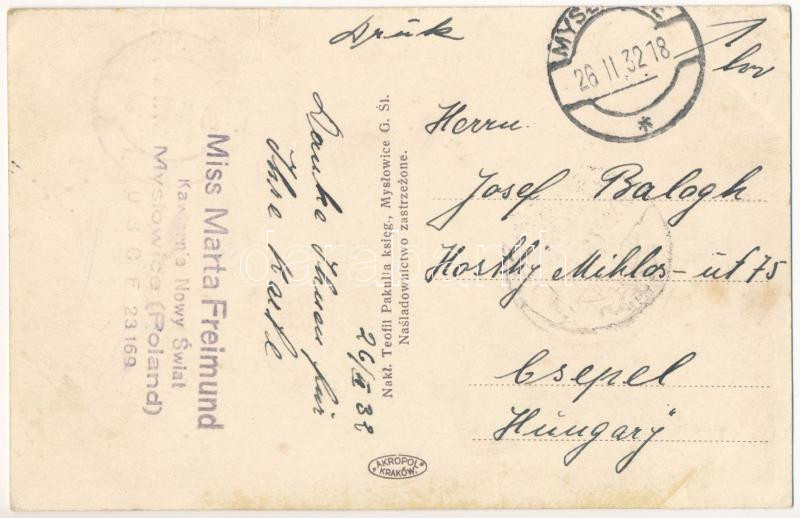 Drŭk
MYSŁ
26 II 32 18
Herrn
Josef Balogh
Horthy Miklos-út 75
Csepel
Hungary
Danke Ihnen für
Ihre Karte
26/II 32
Nakł. Teofil Pakulla księg., Mysłowice G. Śl.
Naśladownictwo zastrzeżone.
Miss Marta Freimund
Kawiarnia Nowy Świat
Mysłowice (Poland)
U S C F 23169
AKROPOL
KRAKÓW.